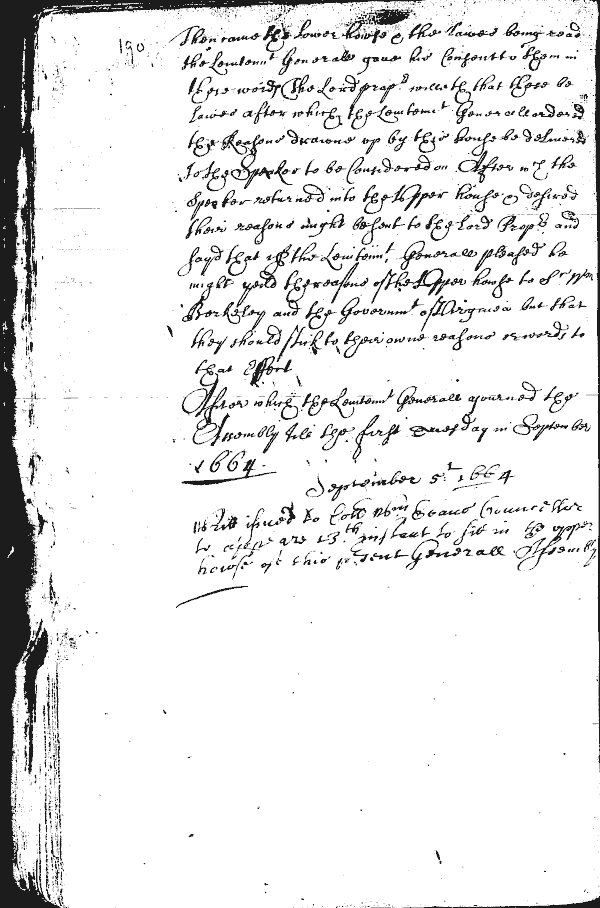 190
Then came the Lower howse & the Lawes being read
the Leiutennt Generall gave his Consent to them in
these words (The Lord propr willeth that these be
Lawes after which the Leiutennt Generall ordered
the Reasons drawne up by this house be delivered
To the Speaker to be Considered on After wch the
Speaker returned into the Upper house & desired
their reasons might be sent to the Lord Propr and
sayd that if the Leiutennt Generall pleased he
might send the reasons of the Upper house to Sr Wm
Berkeley and the Governmt of Virginea but that
they should stick to their owne reasons or words to
that Effect
After which the Leiutennt Generall ajourned the
Assembly till the first Tuesday in September
1664.
September 5t 1664
Writt issued to Coll Wm Evans Councellor
to appeare 13th instant to sitt in the upper
howse of this present Generall Assembly